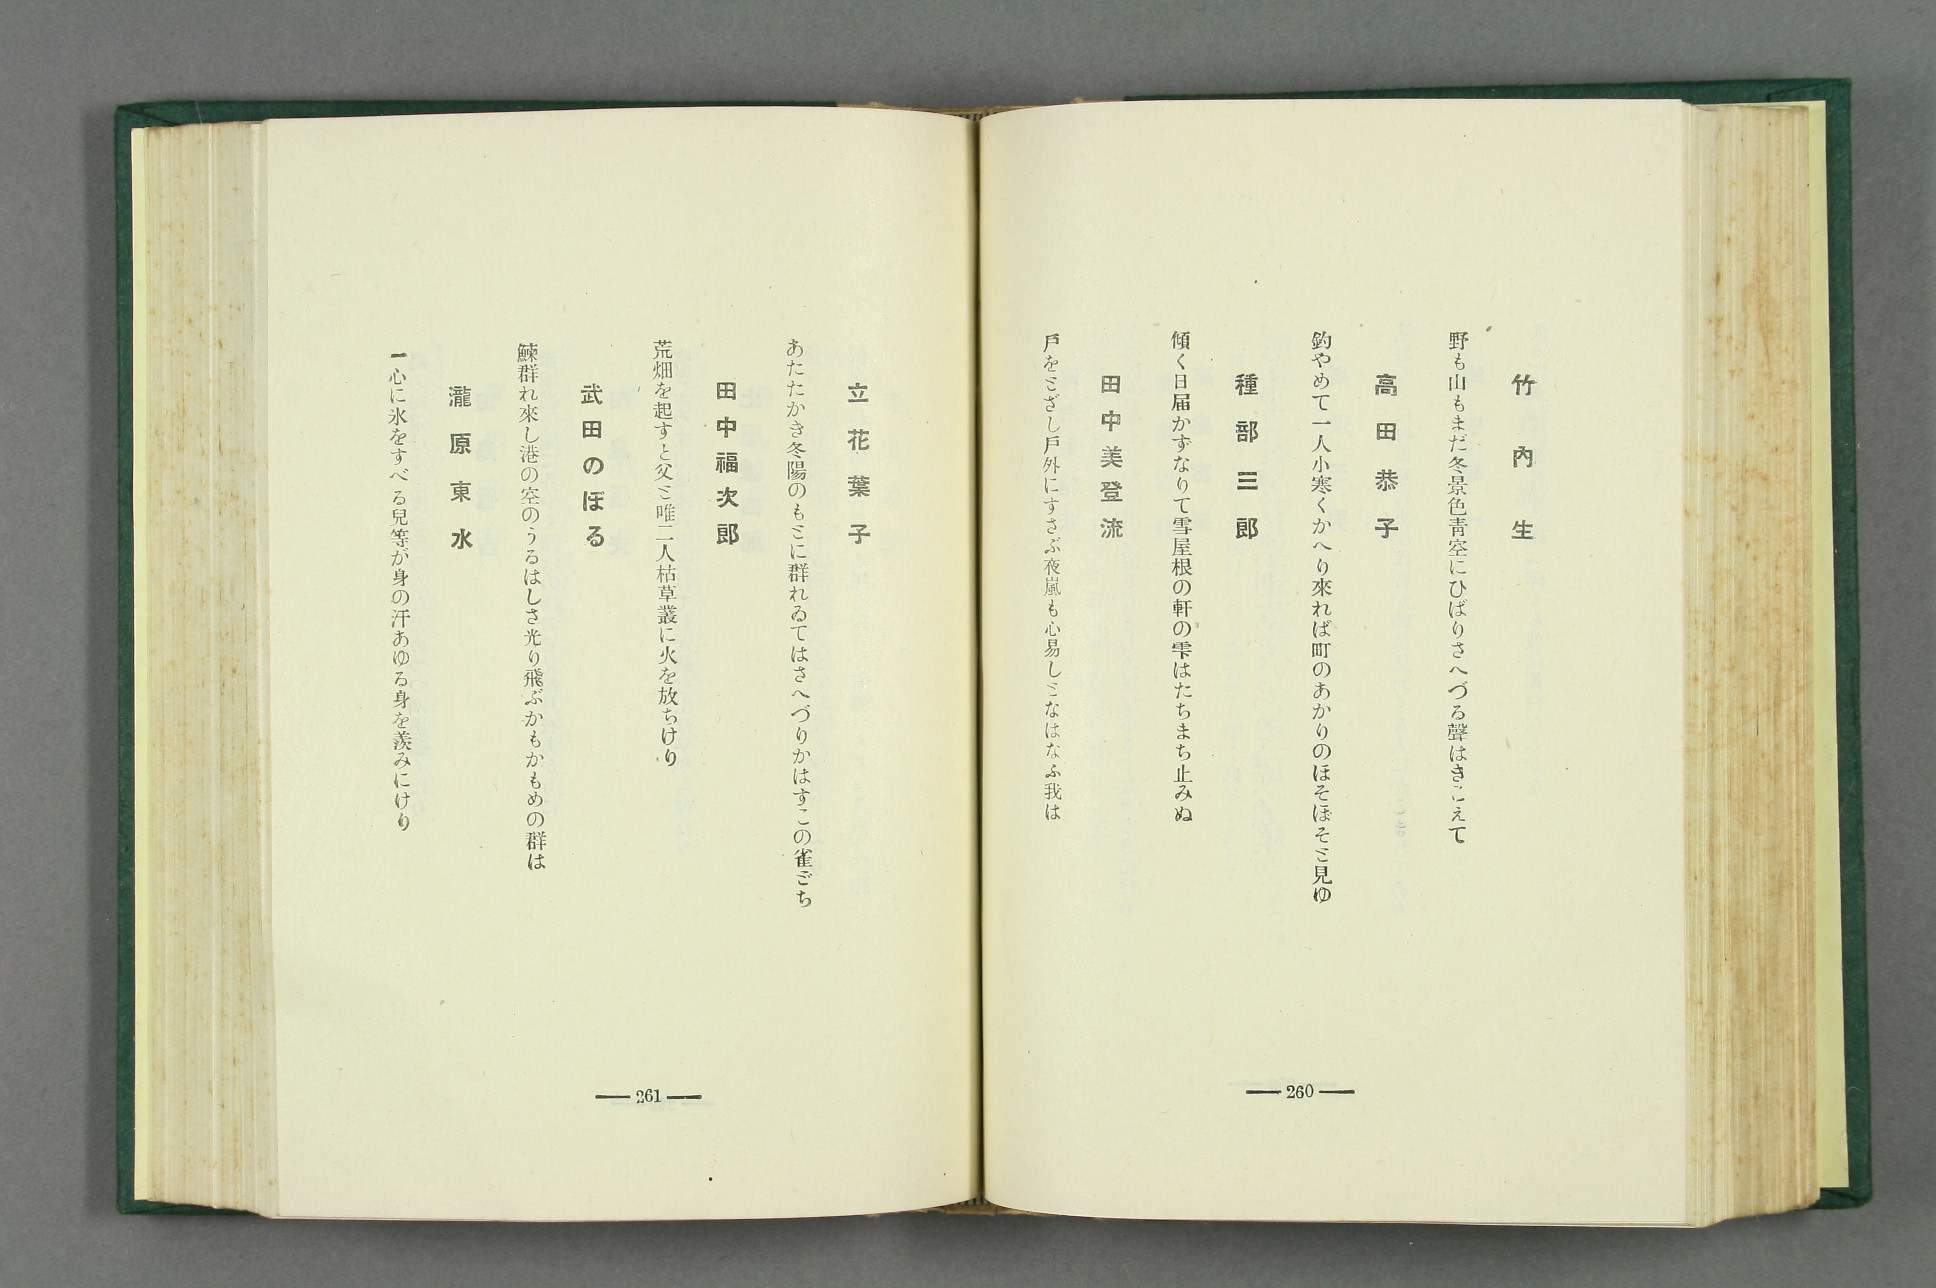 竹內生
野も山もまだ冬景色靑空にひばりさへづる聲はきこえて
高田恭子
釣やめて一人小寒くかへり來れば町のあかりのほそぼそと見ゆ
種部三郎
傾く日届かずなりて雪屋根の軒の雫はたちまち止みぬ
田中美登流
戸をとざし戸外にすさぶ夜嵐も心易しとなはなふ我は
260
立花葉子
あたたかき冬陽のもとに群れゐてはさへづりかはすこの雀ごち
田中福次郎
荒畑を起すと父と唯二人枯草叢に火を放ちけり
武田のぼる
鰊群れ來し港の空のうるはしさ光り飛ぶかもかもめの群は
瀧原東水
一心に氷をすべる兒等が身の汗あゆる身を羨みにけり
261